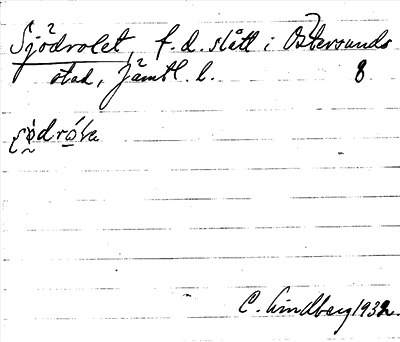 Sjödrolet, f.d. slått i Östersunds
stad, Jämtl. l. 8
C. Lindberg 1932.